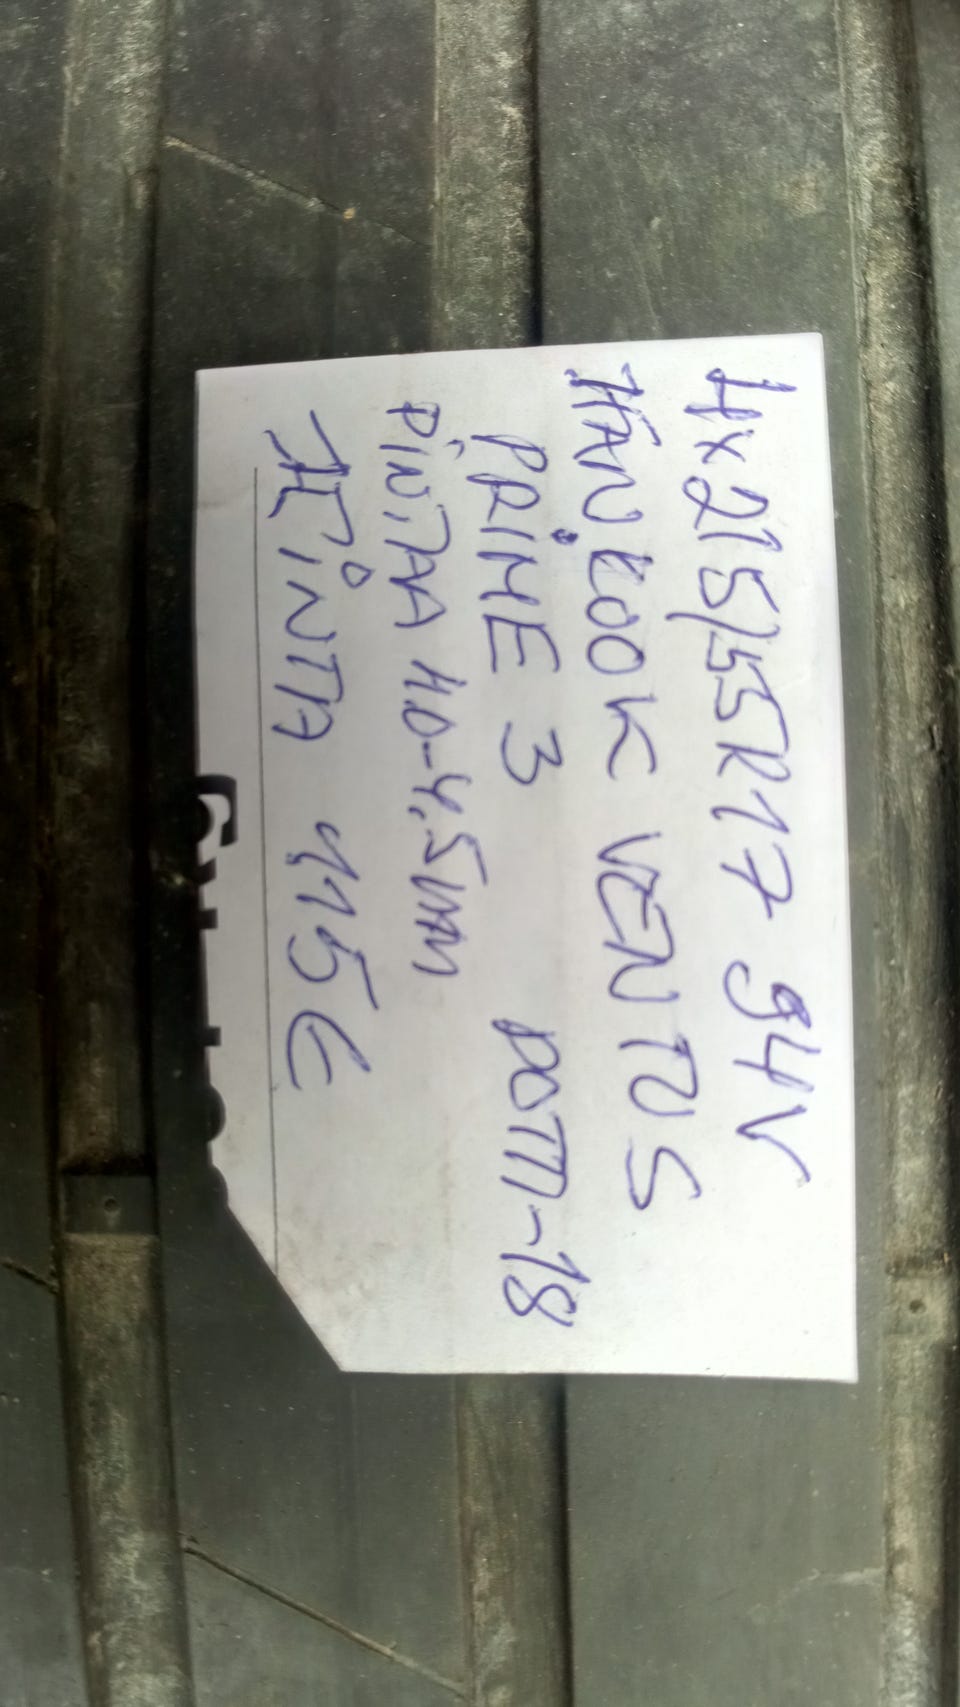 4x215/55R17 94V
HANKOOK VENTUS
PRIME 3 DOT17-18
PINTAA 4.0-4,5MM
HINTA 115€